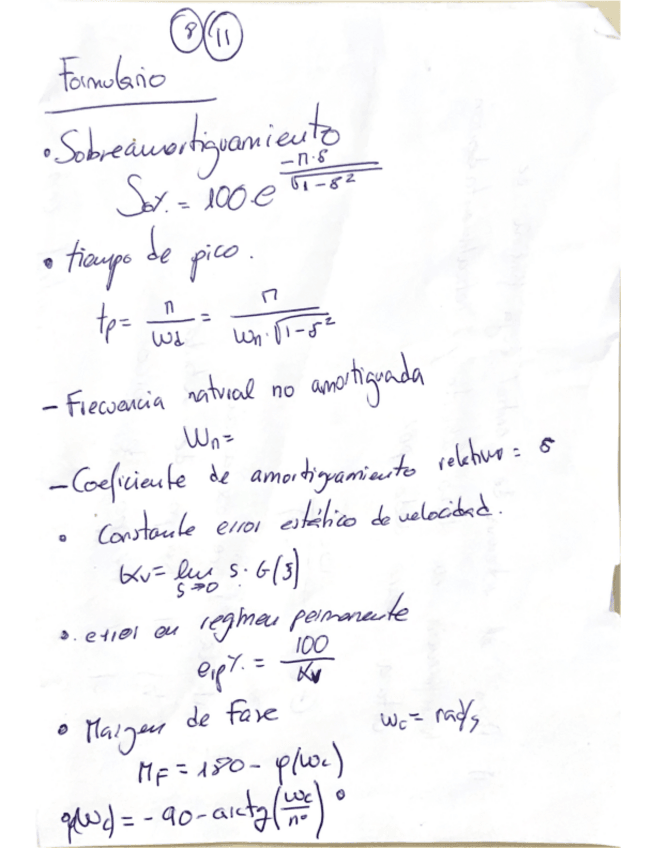 8 11
Formulario
• Sobreamortiguamiento
S₀% = 100·e^(-π·δ/√(1-δ²))
• tiempo de pico.
tp = π/ωd = π/(ωn·√(1-δ²))
- Frecuencia natural no amortiguada
ωn=
- Coeficiente de amortiguamiento relativo = δ
• Constante error estático de velocidad.
Kv = lim s→0 s·G(s)
• error en regimen permanente
erp% = 100/Kv
• Margen de fase ωc = rad/s
MF = 180 - φ(ωc)
φ(ωc) = -90 - arctg(ωc/nº)°